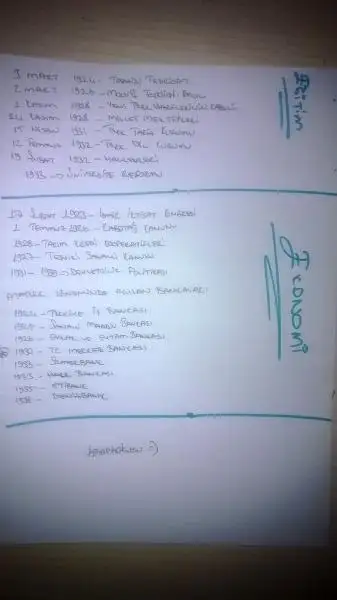 Eğitim
3 MART 1924 - TEVHİDİ TEDRİSAT
2 MART 1926 - MAARİF TEŞKİLATI
1 KASIM 1928 - YENİ TÜRK HARFLERİNİN KABULÜ
24 KASIM 1928 - MİLLET MEKTEPLERİ
15 NİSAN 1931 - TÜRK TARİH KURUMU
12 TEMMUZ 1932 - TÜRK DİL KURUMU
19 ŞUBAT 1932 - HALKEVLERİ
1933 -> ÜNİVERSİTE REFORMU
Ekonomi
17 ŞUBAT 1923 - İZMİR İKTİSAT KONGRESİ
1 TEMMUZ 1926 - KABOTAJ KANUNU
1928 - TARIM KREDİ KOOPERATİFLERİ
1927 - TEŞVİKİ SANAYİ KANUNU
1931 - DEVLETÇİLİK POLİTİKASI
ATATÜRK DÖNEMİNDE AÇILAN BANKALAR:
1924 - TÜRKİYE İŞ BANKASI
1925 - SANAYİ MAADİN BANKASI
1926 - EMLAK VE EYTAM BANKASI
1930 - TC MERKEZ BANKASI
1933 - SÜMERBANK
1933 - HALK BANKASI
1935 - ETİBANK
1938 - DENİZBANK